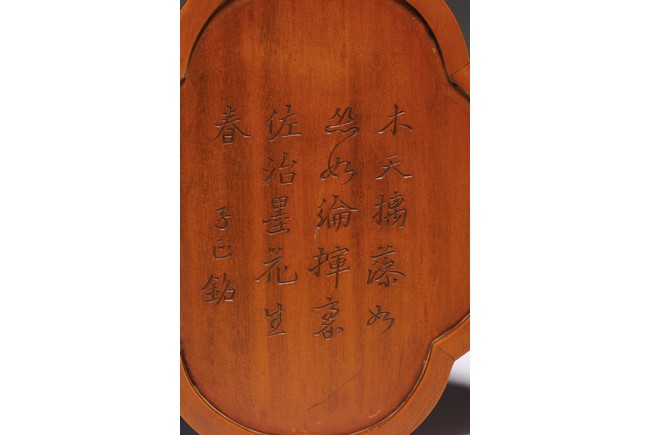 木天摛藻如
丝如綸揮豪
佐治墨花生
春 子正銘